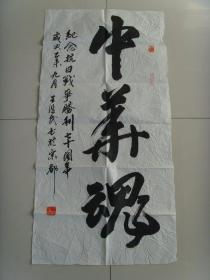 中華魂
紀念抗日戰爭勝利七十周年
歲次乙未年九月 書於京都